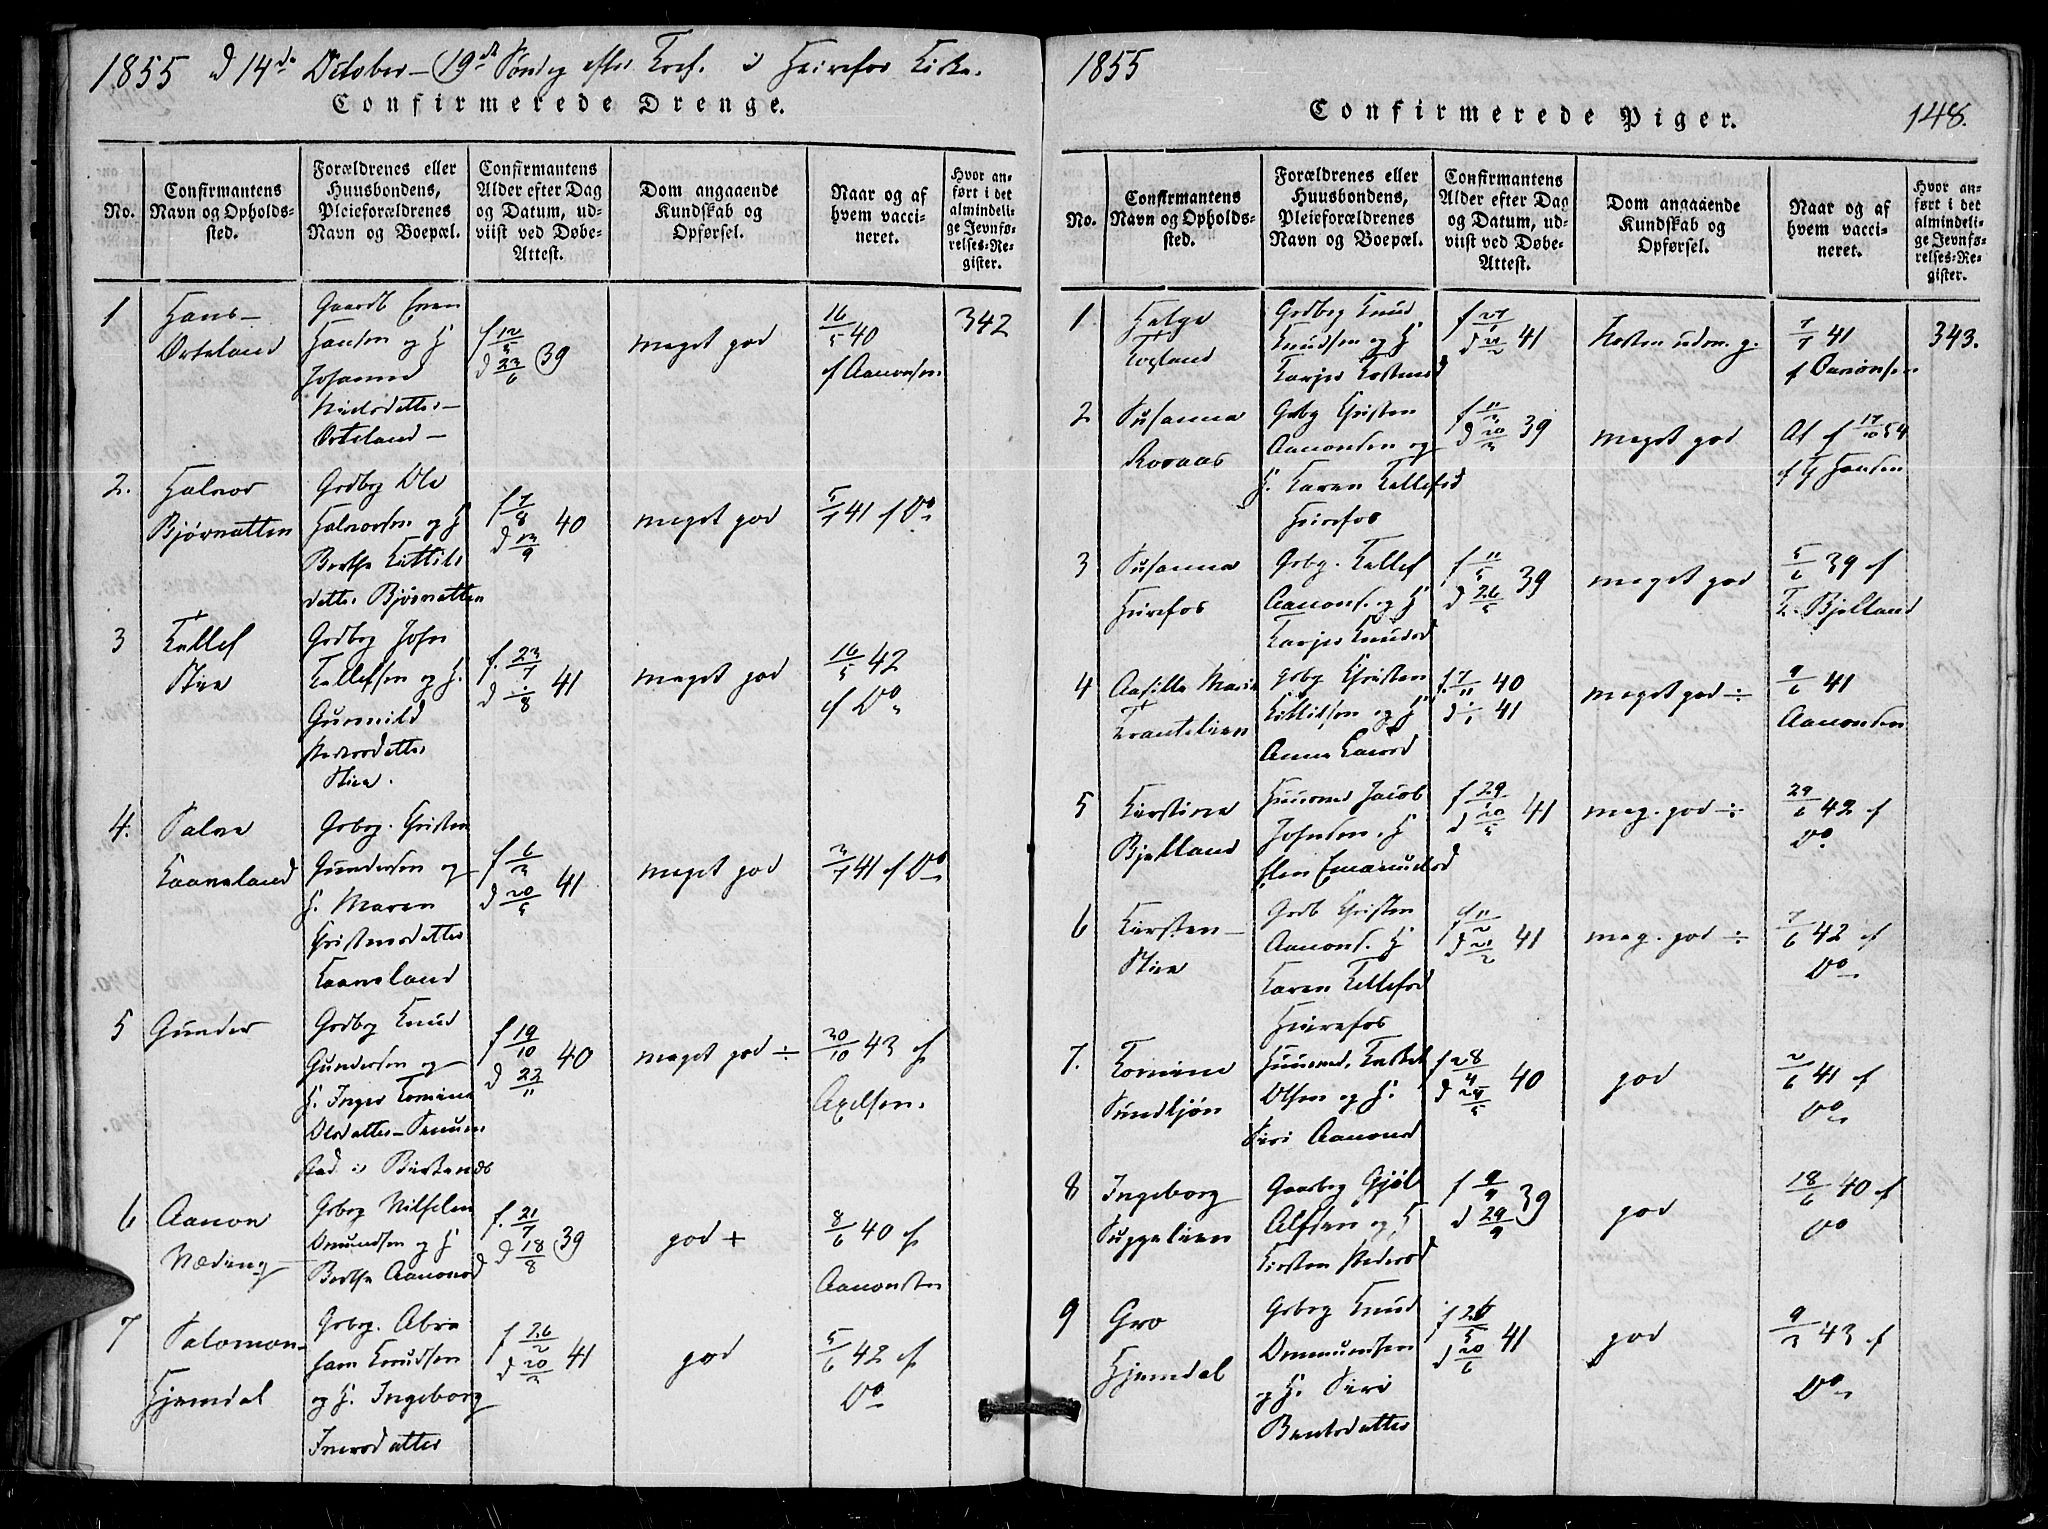 1855 d 14de October – 19de Søndag efter Tref. i Heirefos Kirke.
Confirmerede Drenge.
No.
Confirmantens Navn og Opholds-sted.
Forældrenes eller Huusbondens, Pleieforældrenes Navn og Boepæl.
Confirmantens Alder efter Dag og Datum, ud-viist ved Døbe-Attest.
Dom angaaende Kundskab og Opførsel.
Naar og af hvem vacci-neret.
Hvor an-ført i det almindeli-ge Jevnfø-relses-Re-gister.
1
Hans –
Gaardb Even
Hansen og H
Johanne
Nielsdatter –
f 12/5
d 23/6 39
meget god
16/5 40
f Aanonsen
342
2.
Halvor
Bjørnatten
Grdbrg Ole
Halvorsen og H
Berthe Kittils
datter Bjørnatten
f 7/8
d 13/9 40
meget god
5/7 41 f Do
3
Tellef
Stie
Grdbrg John
Tellefsen og H.
Gunnild
Pedersdatter
Stie.
f. 23/7
d 1/8 41
meget god
16/5 42
f Do
4.
Salve
Kaaveland
Grbrg. Christen
Gundersen og
H. Maren
Christensdatter
Kaaveland
f 6/3
d 20/5 41
meget god
3/7 41 f Do
5
Gunder
Grdbrg Knud
Gundersen og –
H. Inger Tomine
Olsdatter –
f 19/10
d 22/11 40
meget god ÷
30/10 43 f
Axelsen.
6
Aanon
Væding
Grbrg
Omundsen og H
Berthe Aanonsd
f. 21/7
d 18/8 39
god +
8/6 40 f
Aanonsen
7
Salomon
Hjemdal
Grbrg. Abra
ham Knudsen
og H. Ingeborg
Iversdatter
f 26/2
d 20/3 41
god
5/6 42 f
Do
1855
148.
Confirmerede Piger.
No.
Confirmantens Navn og Opholds-sted.
Forældrenes eller Huusbondens, Pleieforældrenes Navn og Boepæl.
Confirmantens Alder efter Dag og Datum, ud-viist ved Døbe-Attest.
Dom angaaende Kundskab og Opførsel.
Naar og af hvem vacci-neret.
Hvor an-ført i det almindeli-ge Jevnfø-relses-Re-gister.
1
Helge
Grdbrg Knud
Knudsen og H
41
Næsten udm. g.
7/7 41
f Aanonsen
343.
2
Susanna
Rosaas
Grbg Christen
Aanonsen og
H. Karen Tellefsd
Heirefos
39
meget god
17/10 54
Hansen
3
Susanna
Heirefos
Grbg. Tellef
Aanons. og H
Tarjer Knudsd
f 11/5
d 26/5 39
meget god
5/6 39 f
T. Bjelland
4
Aasille Marie
Trantelien
Grbg Christen
Kittilsen og H
Anne Larsd
f. 7/11 40
d 1/1 41
meget god ÷
9/6 41
Aanonsen
5
Kirstine
Bjelland
Huusmd Jacob
Johnsen. H
Elen Emanuelsd
f 29/1
d 20/5 41
meg. god ÷
29/6 42 f
Do
6
Kirsten –
Stie
Grdb Christen
Aanons. H
Karen Tellefsd
Heirefos
41
meg. god ÷
7/6 42 f
Do
7.
Tomine
Huusmd.
Olsen og H.
Siri Aanonsd
f 28/4
d 24/5 40
god
2/6 41 f
Do
8
Ingeborg
Suggelien
Gaarbrg Gjøl
Alfsen og H
Kirsten Pedersd
f 9/9
d 29/9 39
god
18/6 40 f
Do
9
Gro
Hjemdal
Grbrg Knud
Ommundsen
og H. Siri
Bentsdatter
f 26/5
d 20/6 41
god
9/3 43 f
Do